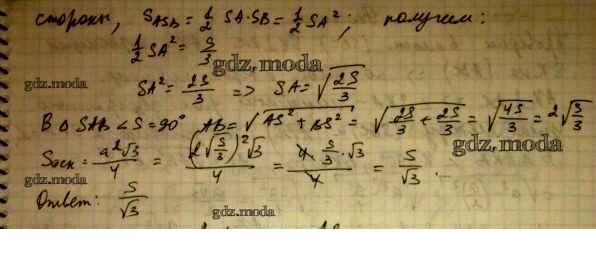 стороны, S_ASB = 1/2 SA·SB = 1/2 SA²; получим:
1/2 SA² = S/3
gdz.moda
gdz.moda
SA² = 2S/3 => SA = √(2S/3)
В △ SAB ∠S = 90° AB = √(AS² + BS²) = √(2S/3 + 2S/3) = √(4S/3) = 2√(S/3)
gdz.moda
Sосн = a²√3/4 = (2√(S/3))²√3/4 = 4·S/3·√3/4 = S/√3.
gdz.moda
Ответ: S/√3
gdz.moda